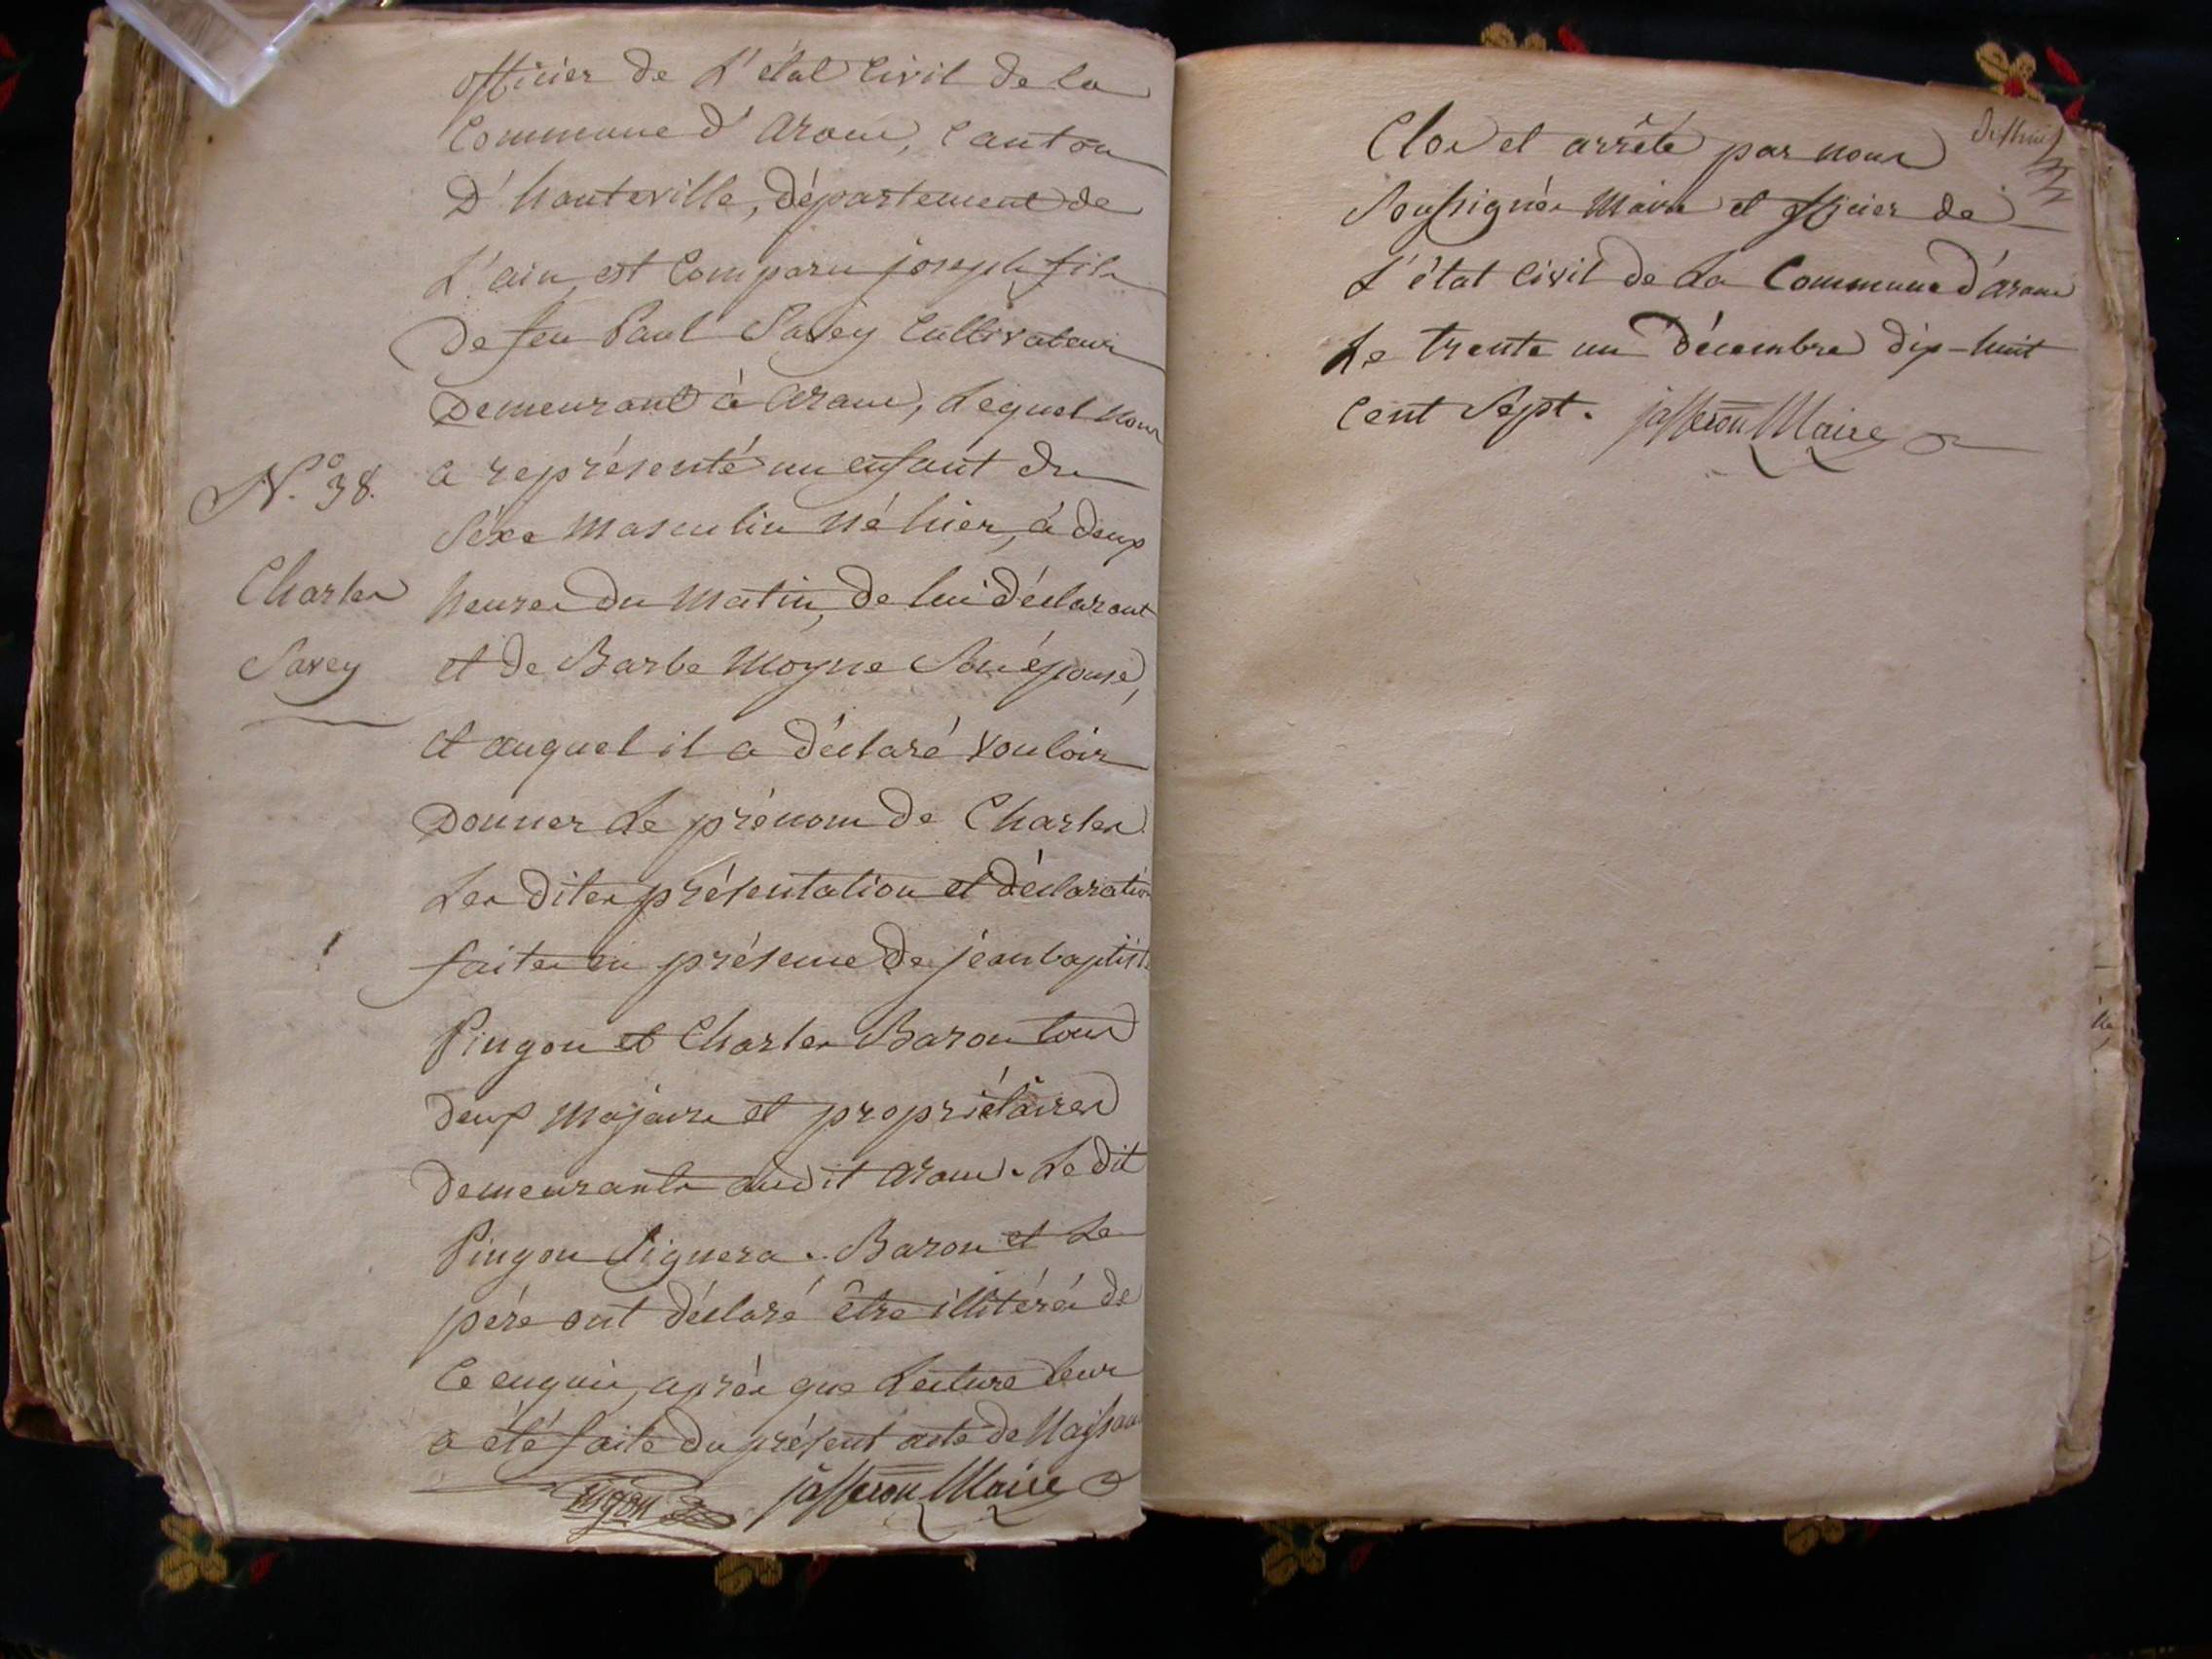 officier de L'état Civil de la
Commune d'Aranc, Canton
D'hauteville, département de
L'ain, est Comparu joseph fils
de feu Paul Savey Cultivateur
Demeurant à Aranc, Lequel Nous
N.° 38. a représenté un enfant du
Séxe Masculin Né hier, à deux
Charles heures du Matin, de lui déclarant
Savey et de Barbe Moyne Son épouse,
et auquel il a déclaré Vouloir
Donner Le prénom de Charles
Les dites présentation et déclaration
faites en présence de jean baptiste
Pingon et Charles Baron tous
deux Majeurs et propriétaires
demeurants audit Aranc. Le dit
Pingon Signera. Baron et Le
père ont déclaré être illitérés de
Ce enquis, après que Lecture leur
a été faite du présent acte de Naissan
jasseron Maire
Clos et arrêté par nous
Soussignés Maire et officier de
L'état Civil de La Commune d'Aranc
Le trente un Décembre dix-huit
Cent Sept. jasseron Maire